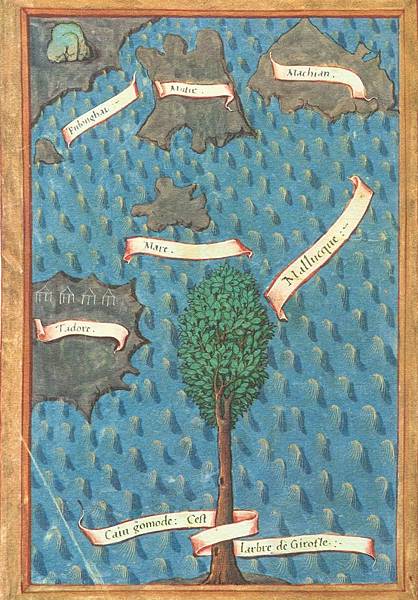 Mutir.
Machian.
Mallucque:~
Mare.
Tadore.
Caiu gomode: Cest
Larbre de Girofle:~